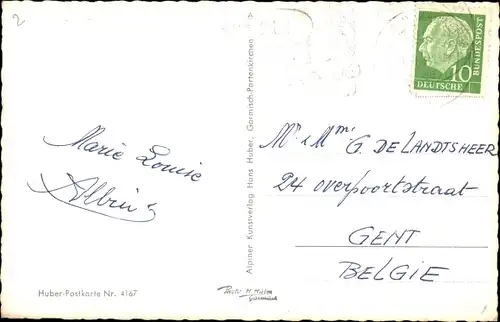 2
Marie Louise
Albin
Huber-Postkarte Nr. 4167
A
Alpiner Kunstverlag Hans Huber, Garmisch-Partenkirchen
Photo H. Huber
Garmisch
10
DEUTSCHE
BUNDESPOST
Mr & Mme G. DE LANDTSHEER
24 overpoortstraat
GENT
BELGIE